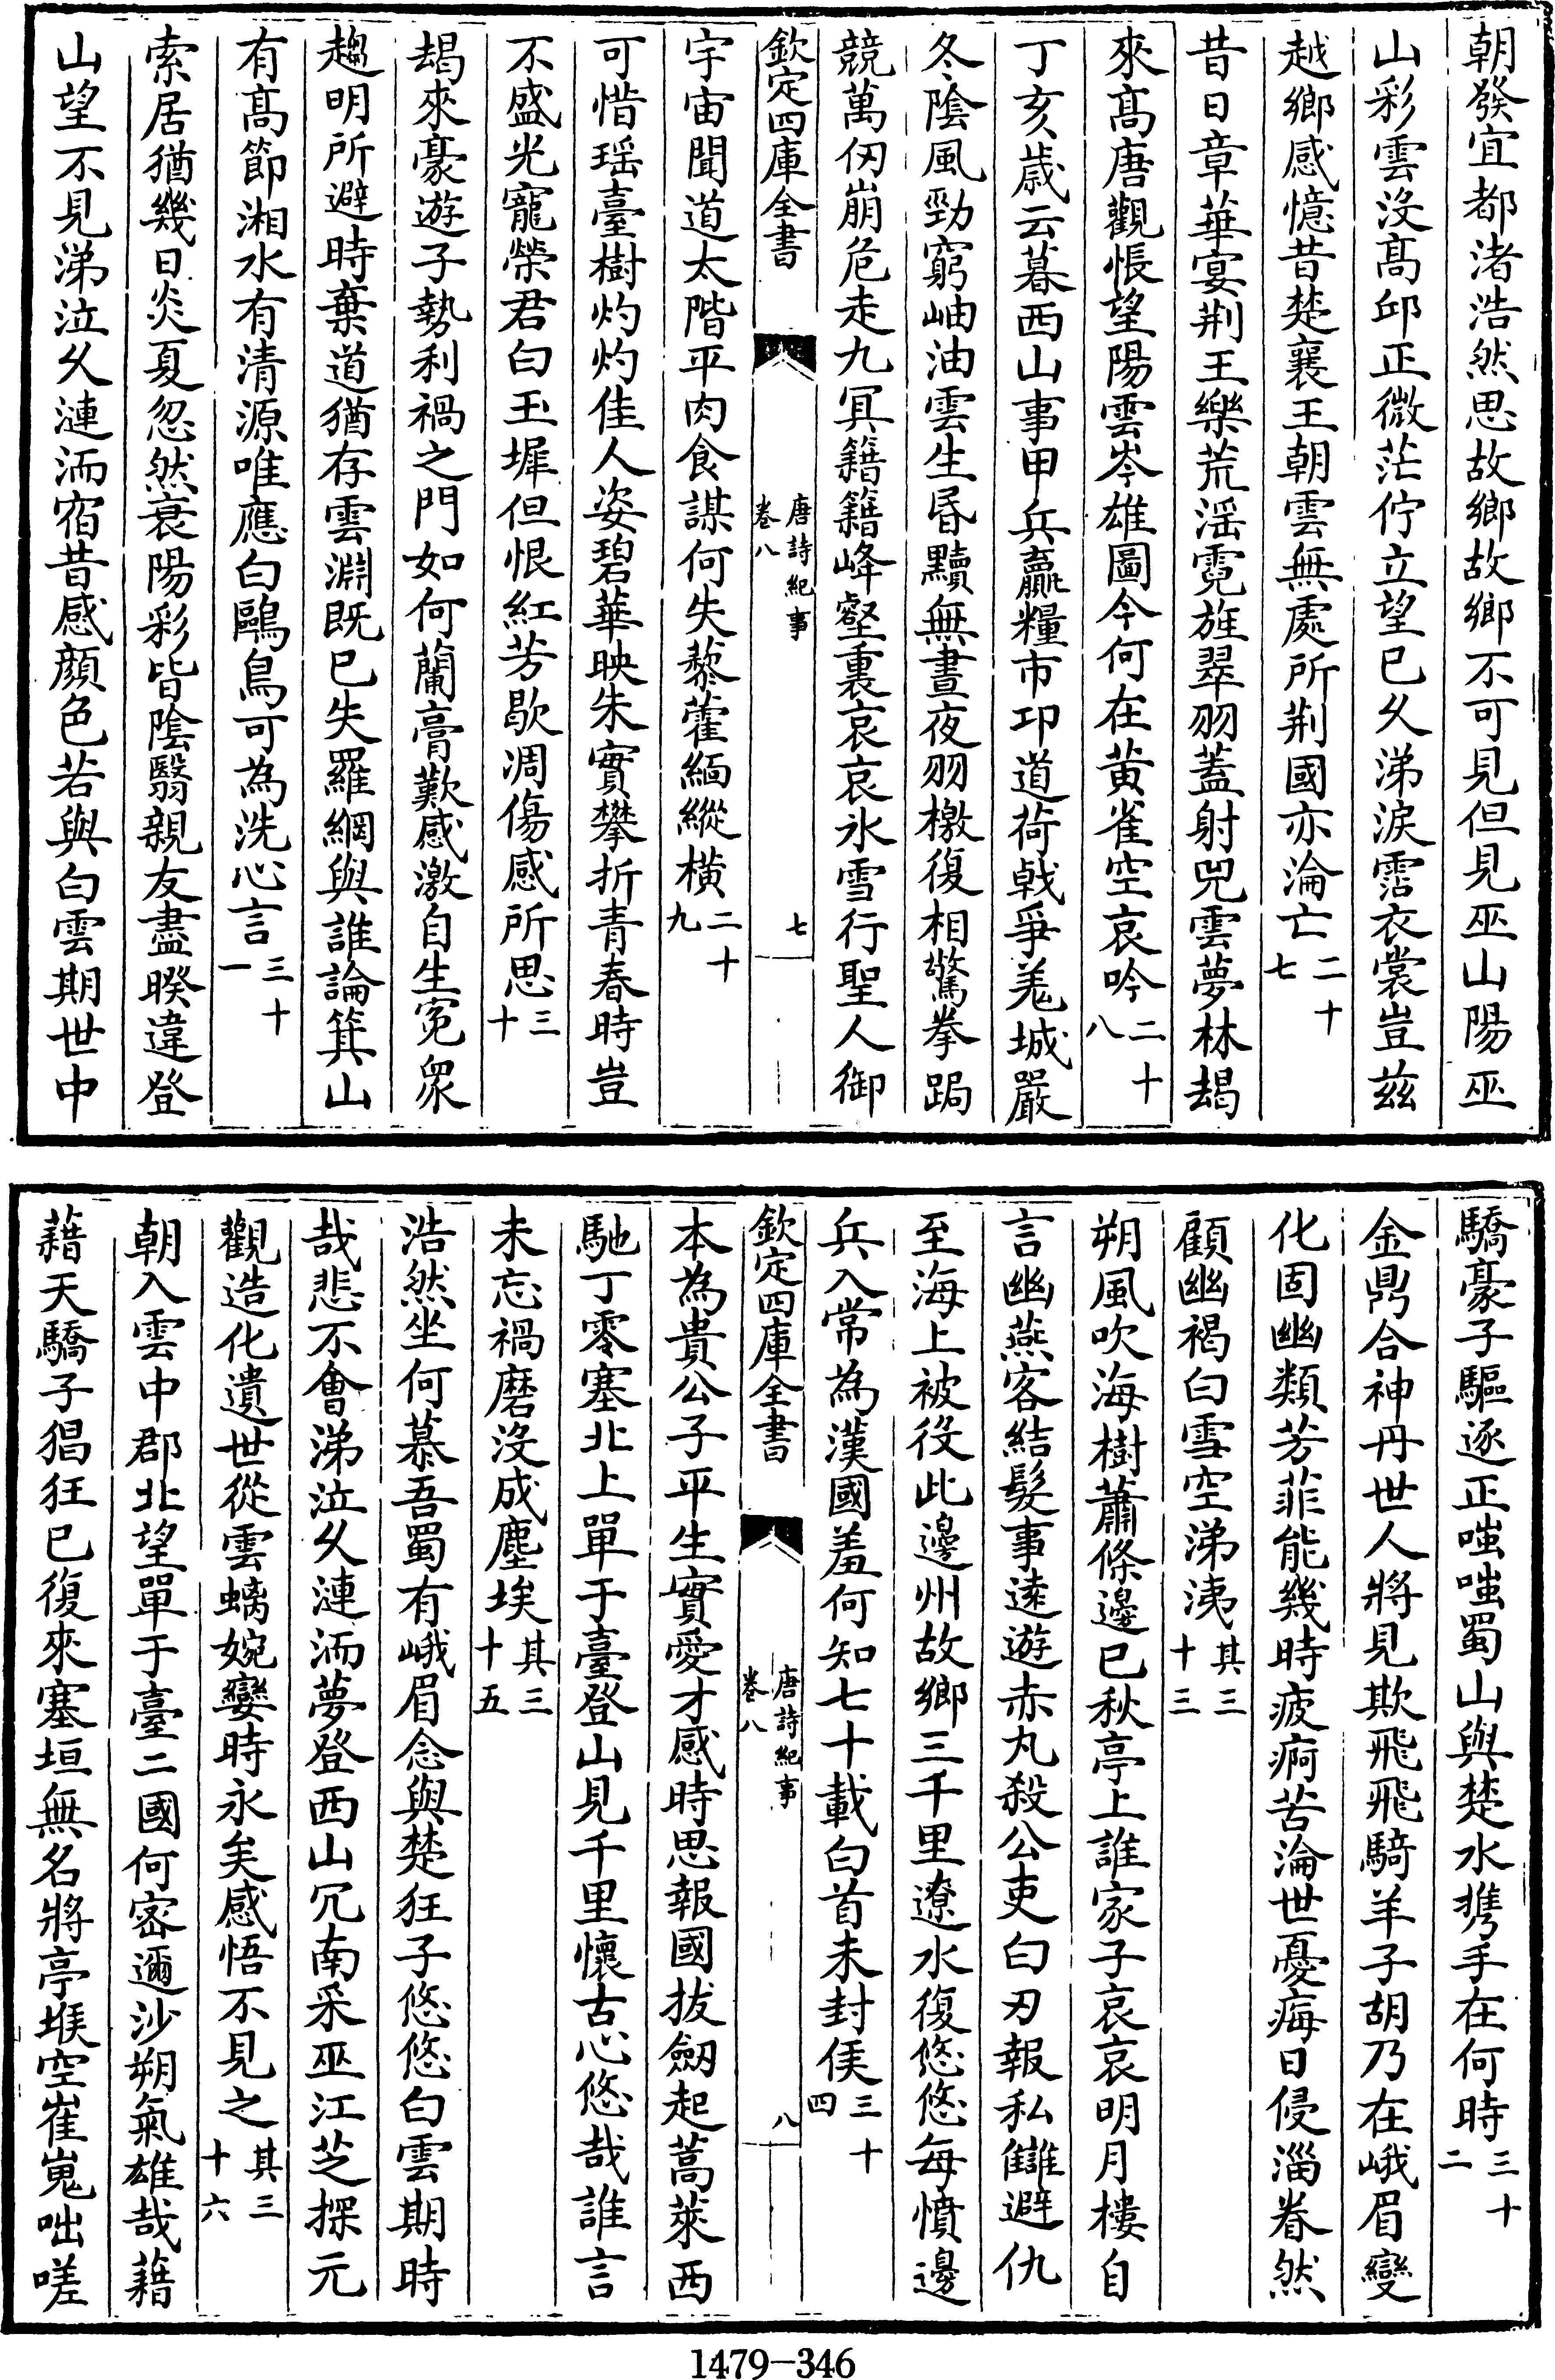 朝發宜都渚浩然思故鄉故鄉不可見但見巫山陽巫
山彩雲没髙邱正微茫佇立望已久涕淚霑衣裳豈兹
越鄉感憶昔楚襄王朝雲無處所荆國亦淪亡二十七
昔日章華宴荆王樂荒滛霓旌翠羽蓋射兕雲夢林朅
來髙唐觀悵望陽雲岑雄圖今何在黄雀空哀吟二十八
丁亥歳云暮西山事甲兵贏糧市卭道荷戟爭羗城嚴
冬陰風勁窮岫油雲生昏曀無晝夜羽檄復相驚拳跼
競萬仭崩危走九冥籍籍峰壑裏哀哀氷雪行聖人御
欽定四庫全書 唐詩紀事 卷八 七
宇宙聞道太階平肉食謀何失藜藿緬縱横二十九
可惜瑶臺樹灼灼佳人姿碧華映朱實攀折青春時豈
不盛光寵榮君白玉墀但恨紅芳歇凋傷感所思三十
朅來豪遊子勢利禍之門如何蘭膏歎感激自生寃衆
趨明所避時棄道猶存雲淵既已失羅網與誰論箕山
有髙節湘水有清源唯應白鷗鳥可為洗心言三十一
索居猶幾日炎夏忽然衰陽彩皆陰翳親友盡暌違登
山望不見涕泣久漣洏宿昔感顔色若與白雲期世中
驕豪子驅逐正嗤嗤蜀山與楚水携手在何時三十二
金鼎合神丹世人將見欺飛飛騎羊子胡乃在峨眉變
化固幽類芳菲能幾時疲痾苦淪世憂痗日侵淄眷然
顧幽褐白雪空涕洟其三十三
朔風吹海樹蕭條邊已秋亭上誰家子哀哀明月樓自
言幽燕客結髪事逺遊赤丸殺公吏白刃報私讎避仇
至海上被役此邊州故鄉三千里遼水復悠悠每憤邊
兵入常為漢國羞何知七十載白首未封侯三十四
欽定四庫全書 唐詩紀事 卷八 八
本為貴公子平生實愛才感時思報國拔劒起蒿萊西
馳丁零塞北上單于臺登山見千里懷古心悠哉誰言
未忘禍磨没成塵埃其三十五
浩然坐何慕吾蜀有峨眉念與楚狂子悠悠白雲期時
哉悲不會涕泣久漣洏夢登西山穴南采巫江芝探元
觀造化遺世從雲螭婉孌時永矣感悟不見之其三十六
朝入雲中郡北望單于臺二國何宻邇沙朔氣雄哉藉
藉天驕子猖狂已復來塞垣無名將亭堠空崔嵬咄嗟
1479-346